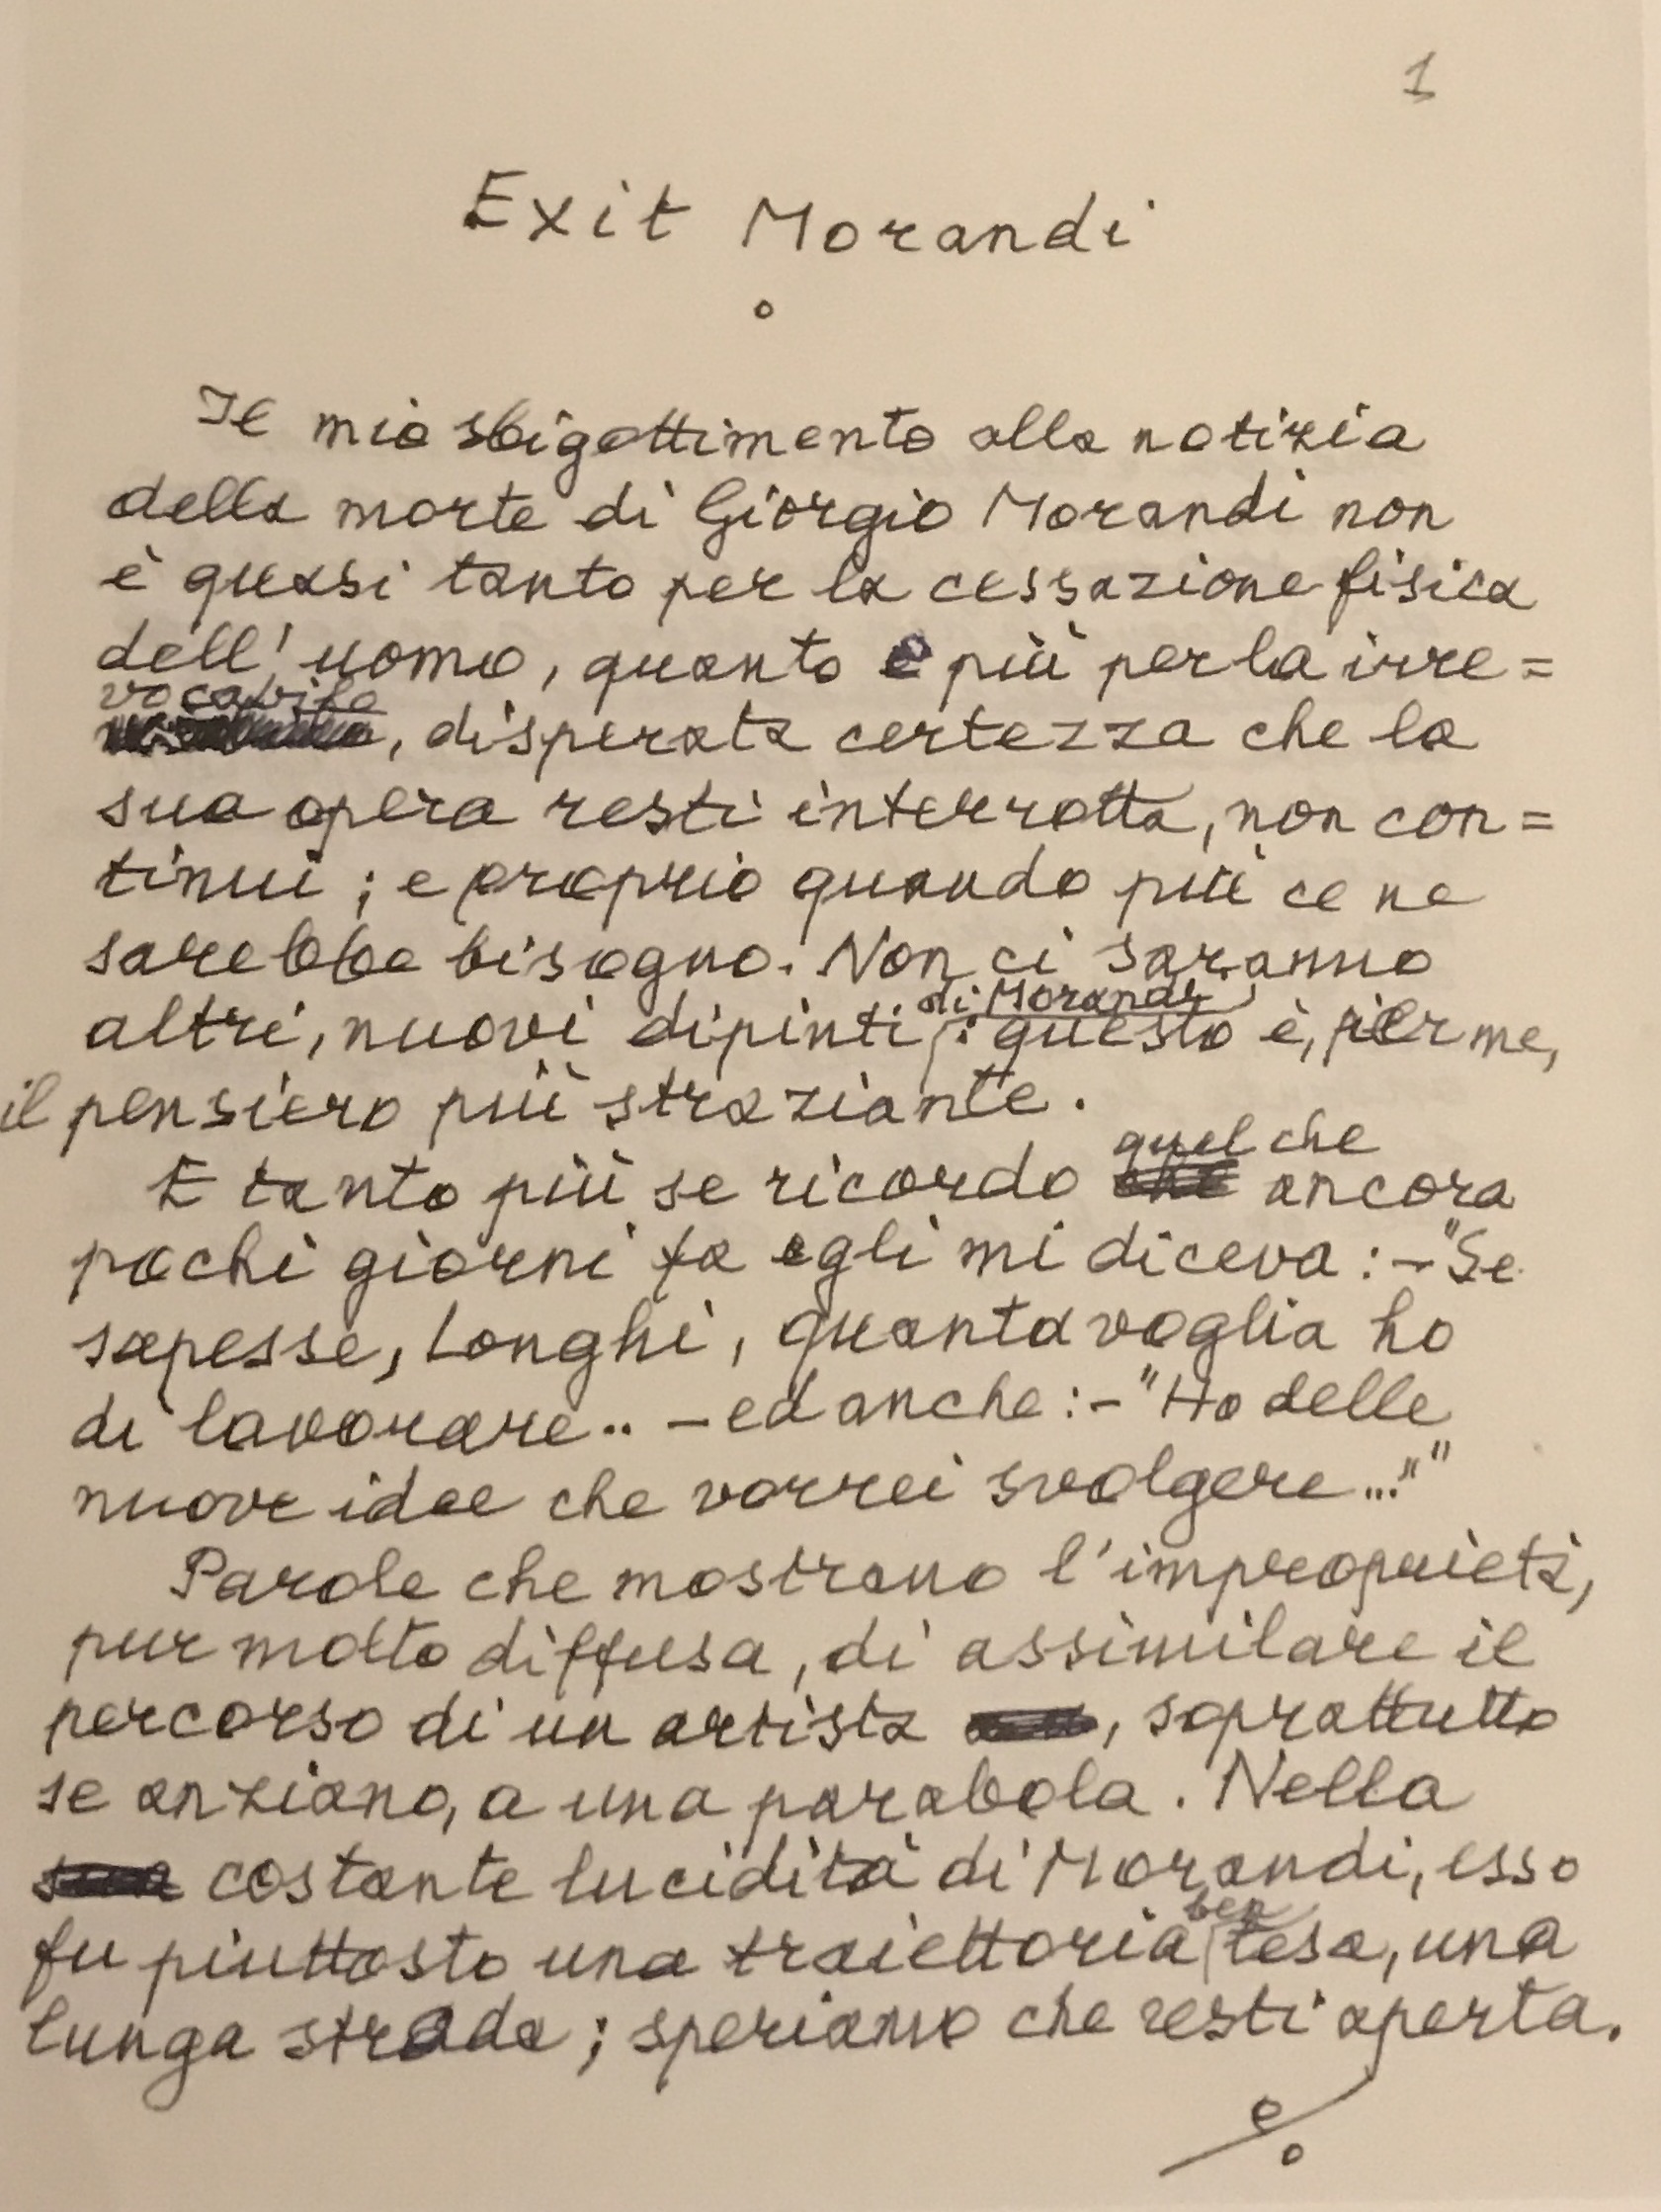 1
Exit Morandi
Il mio sbigottimento alla notizia
della morte di Giorgio Morandi non
è quasi tanto per la cessazione fisica
dell'uomo, quanto e più per la irre=
vocabile
, disperata certezza che la
sua opera resti interrotta, non con=
tinui; e proprio quando più ce ne
sarebbe bisogno. Non ci saranno
di Morandi
altri, nuovi dipinti : questo è, per me,
il pensiero più straziante.
quel che
E tanto più se ricordo che ancora
pochi giorni fa egli mi diceva: - "Se
sapesse, Longhi, quanta voglia ho
di lavorare.. - ed anche: - "Ho delle
nuove idee che vorrei svolgere..." "
Parole che mostrano l'improprietà,
pur molto diffusa, di assimilare il
percorso di un artista , soprattutto
se anziano, a una parabola. Nella
sua costante lucidità di Morandi, esso
ben
fu piuttosto una traiettoria tesa, una
lunga strada; speriamo che resti aperta.